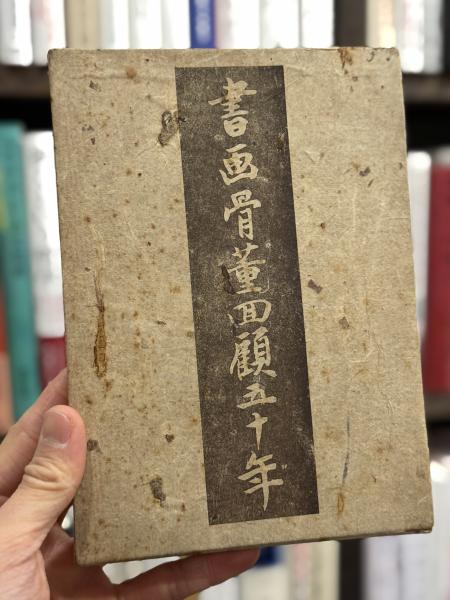 書画骨董回顧五十年